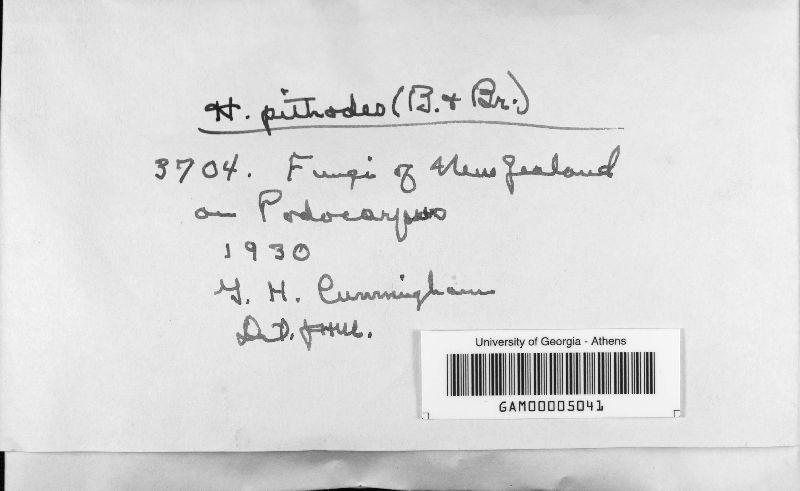 H. pithodes (B. & Br.)
3704. Fungi of New Zealand
on Podocarpus
1930
G. H. Cunningham
Det. JHM.
University of Georgia - Athens
GAM00005041